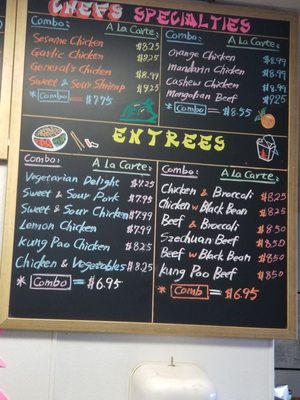 CHEFS SPECIALTIES
Combo: A La Carte:
Sesame Chicken $8.25
Garlic Chicken $8.25
General's Chicken $8.99
Sweet & Sour Shrimp $9.25
* Combo = $7.75
Combo: A La Carte:
Orange Chicken $8.99
mandarin Chicken $8.99
Cashew Chicken $8.99
Mongolian Beef $9.25
* Combo = $8.55
ENTREES
Combo: A La Carte:
Vegetarian Delight $7.25
Sweet & Sour Pork $7.95
Sweet & Sour Chicken $7.99
Lemon Chicken $7.99
Kung Pao Chicken $8.25
Chicken & Vegetables $8.25
* Combo = $6.95
Combo: A La Carte:
Chicken & Broccoli $8.25
Chicken w Black Bean $8.25
Beef & Broccoli $8.50
Szechuan Beef $8.50
Beef w Black Bean $8.50
Kung Pao Beef $8.50
* Comb = $6.95